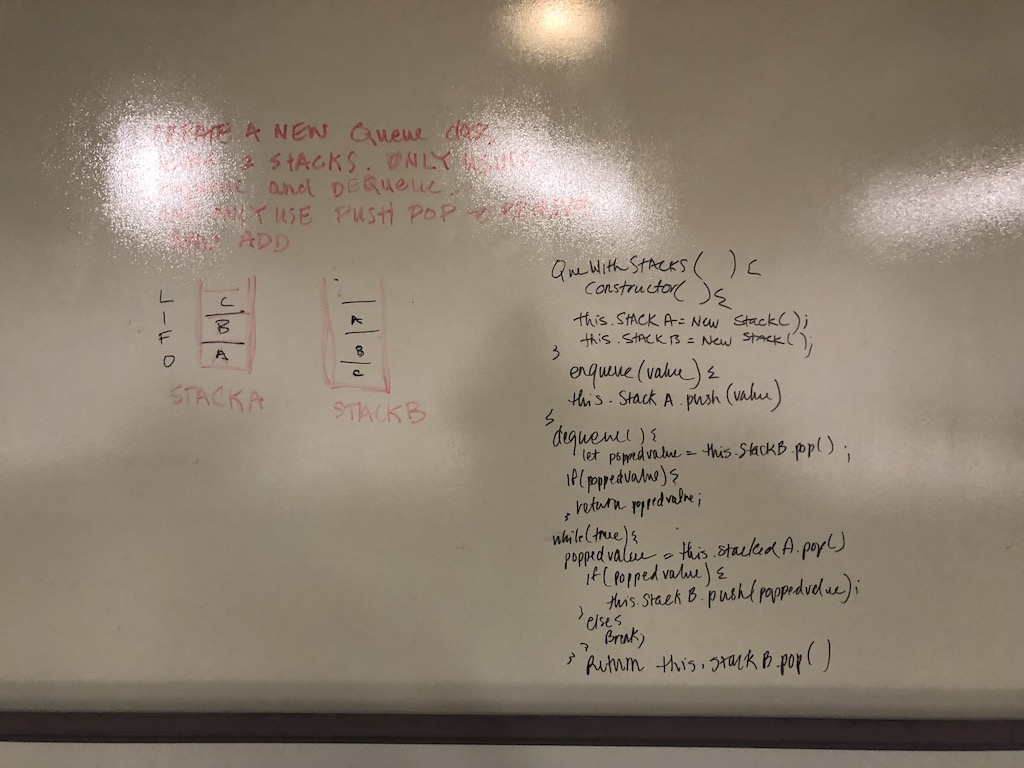 A NEW Queue class
STACKS. ONLY
and DEQueue.
USE PUSH POP
ADD
L
I
F
O
C
B
A
STACK A
A
B
C
STACK B
QueWithStacks( ) {
Constructor( ) {
this.STACK A = New Stack();
this.STACK B = New Stack();
}
enqueue(value) {
this.Stack A.push(value)
}
dequeue() {
let poppedvalue = this.StackB.pop();
if(poppedvalue) {
return poppedvalue;
}
while(true) {
poppedvalue = this.stacked A.pop()
if(poppedvalue) {
this.Stack B.push(poppedvalue);
} else {
Break;
}
} Return this.stack B.pop()